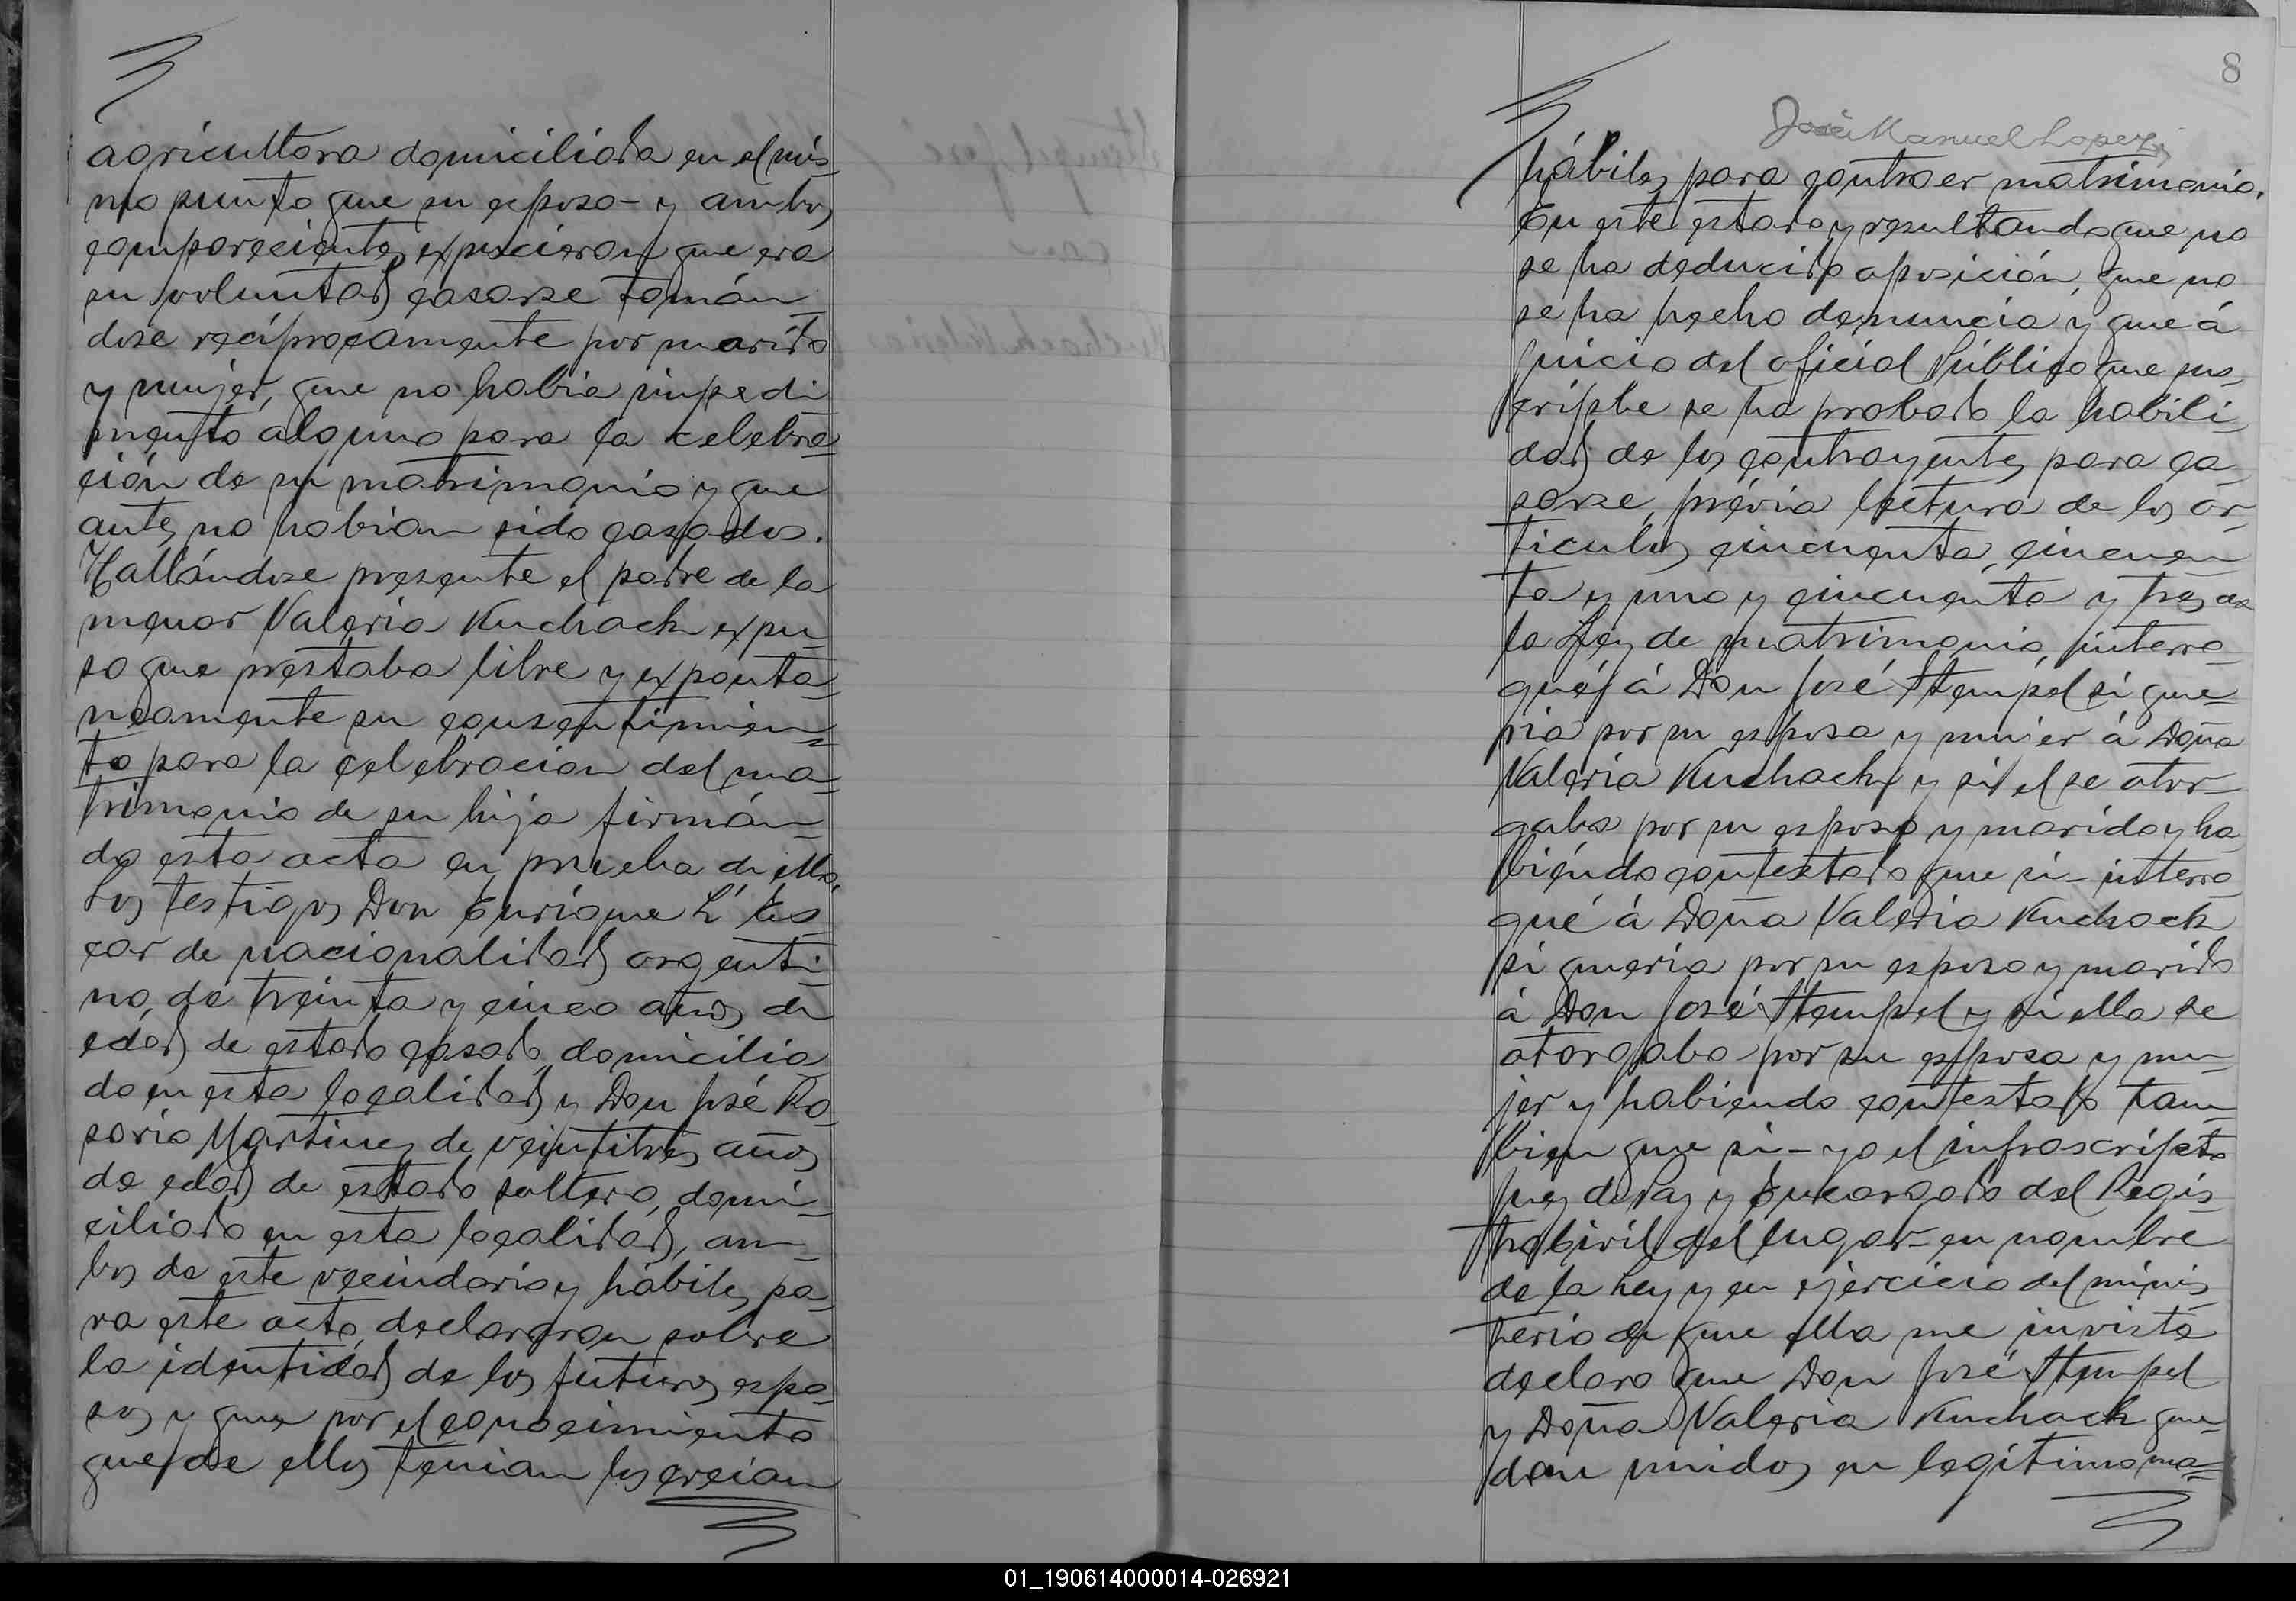 agricultora domiciliada en el mis-
mo punto que su esposo - y ambos
comparecientes expucieron que era
su voluntad casarse tomán-
dose recíprocamente por marido
y mujer, que no habia impedi
mento alguno para la celebra-
ción de su matrimonio y que
antes no habian sido casados.
Hallándose presente el padre de la
menor Valeria Kuchack expu-
so que prestaba libre y exponta-
neamente su consentimien-
to para la celebracion del ma-
trimonio de su hija firmán-
do esta acta en prueba de ello.
Los testigos Don Enrique L'
de nacionalidad argenti-
no, de treinta y cinco años de
edad, de estado casado, domicilia-
do en esta localidad, y Don José Ro-
sario Martinez de veintitres años
de edad de estado soltero, domi-
ciliado en esta localidad, am-
bos de este vecindario y hábiles pa-
ra este acto, declararon sobre
la identidad de los futuros espo-
sos y que por el conocimiento
que de ellos tenian los creian
8
José Manuel Lopez
hábiles para contraer matrimonio.
En este estado y resultando que no
se ha deducido oposición, que no
se ha hecho denuncia y que á
juicio del oficial Público que sus-
cripbe se ha probado la habili-
dad de los contrayentes para ca-
sarse, prévia lectura de los ar-
ticulos cincuenta, cincuen
ta y uno y cincuenta y tres de
la Ley de matrimonio, interro-
gué á Don José Stempel si que-
ria por su esposa y mujer á Doña
Valeria Kuchack y si el se otor-
gaba por su esposo y marido y ha-
biendo contestado que si - interro-
gué á Doña Valeria Kuchack
si queria por su esposo y marido
á Don José Stempel y si ella se
otorgaba por su esposa y mu-
jer y habiendo contestado tam-
bien que si - yo el infrascripto
Juez de Paz y Encargado del Regis-
tro Civil del lugar - en nombre
de la Ley y en ejercicio del minis-
terio de que ella me invista
declaro que Don José Stempel
y Doña Valeria Kuchack que-
dan unidos en legítimo ma-
01_190614000014-026921